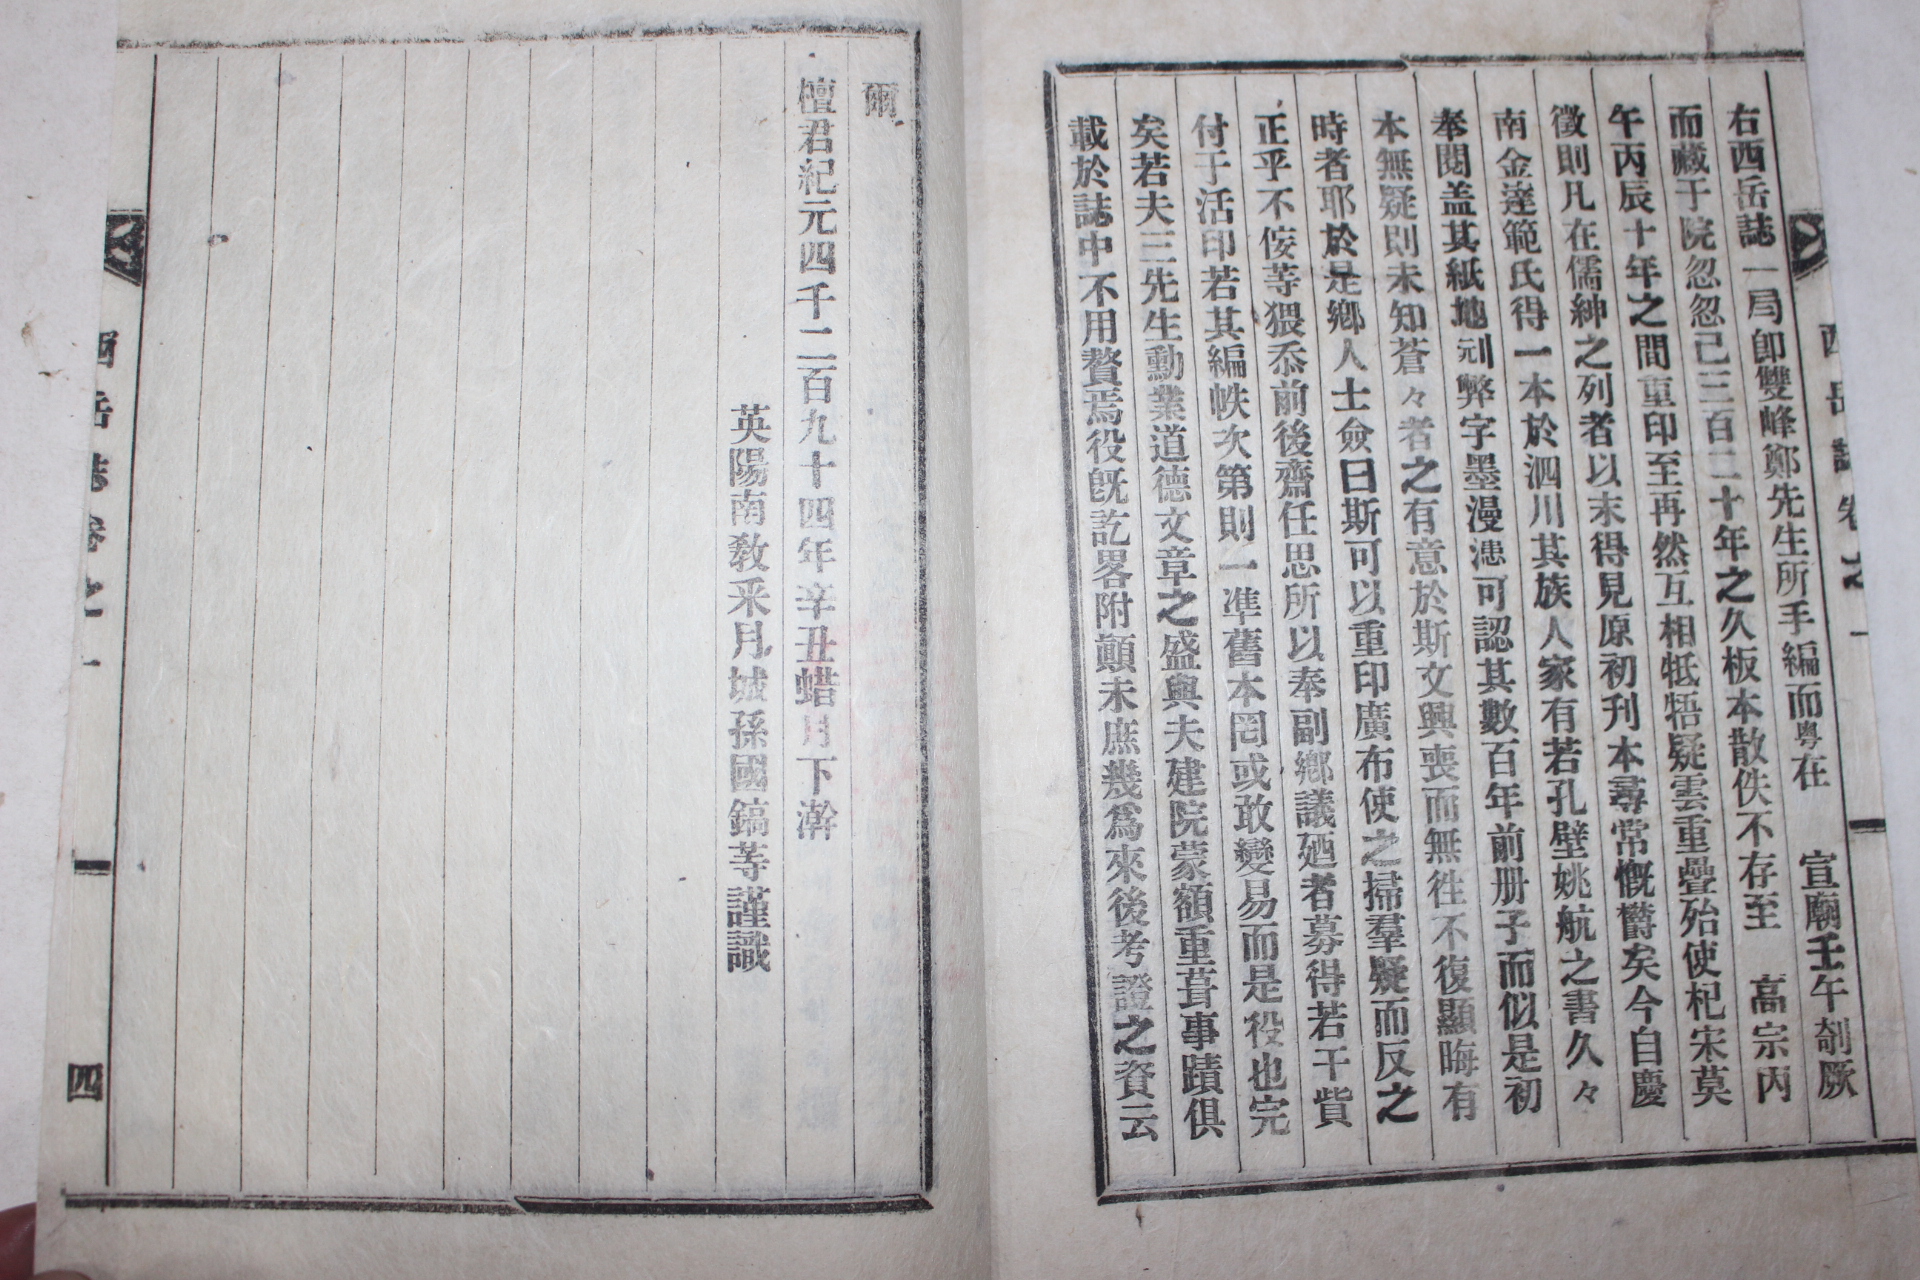 右西岳誌一局卽雙峰鄭先生所手編而粤在 宣廟壬午剞厥
而藏于院忽忽已三百二十年之久板本散佚不存至 高宗丙
午丙辰十年之間重印至再然互相牴牾疑雲重疊殆使杞宋莫
徵則凡在儒紳之列者以未得見原初刊本尋常慨欝矣今自慶
南金達範氏得一本於泗川其族人家有若孔壁姚航之書久々
奉閱盖其紙地刓弊字墨漫漶可認其數百年前册子而似是初
本無疑則未知蒼々者之有意於斯文興喪而無徃不復顯晦有
時者耶於是鄕人士僉曰斯可以重印廣布使之掃羣疑而反之
正乎不侫等猥忝前後齋任思所以奉副鄕議廼者募得若干貲
付于活印若其編帙次第則一准舊本罔或敢變易而是役也完
矣若夫三先生勳業道德文章之盛與夫建院蒙額重葺事蹟俱
載於誌中不用贅焉役旣訖畧附顚末庶幾爲來後考證之資云
西岳誌卷之一
爾
檀君紀元四千二百九十四年辛丑蜡月下澣
英陽南敎釆月城孫國鎬等謹識
西岳誌卷之一 四